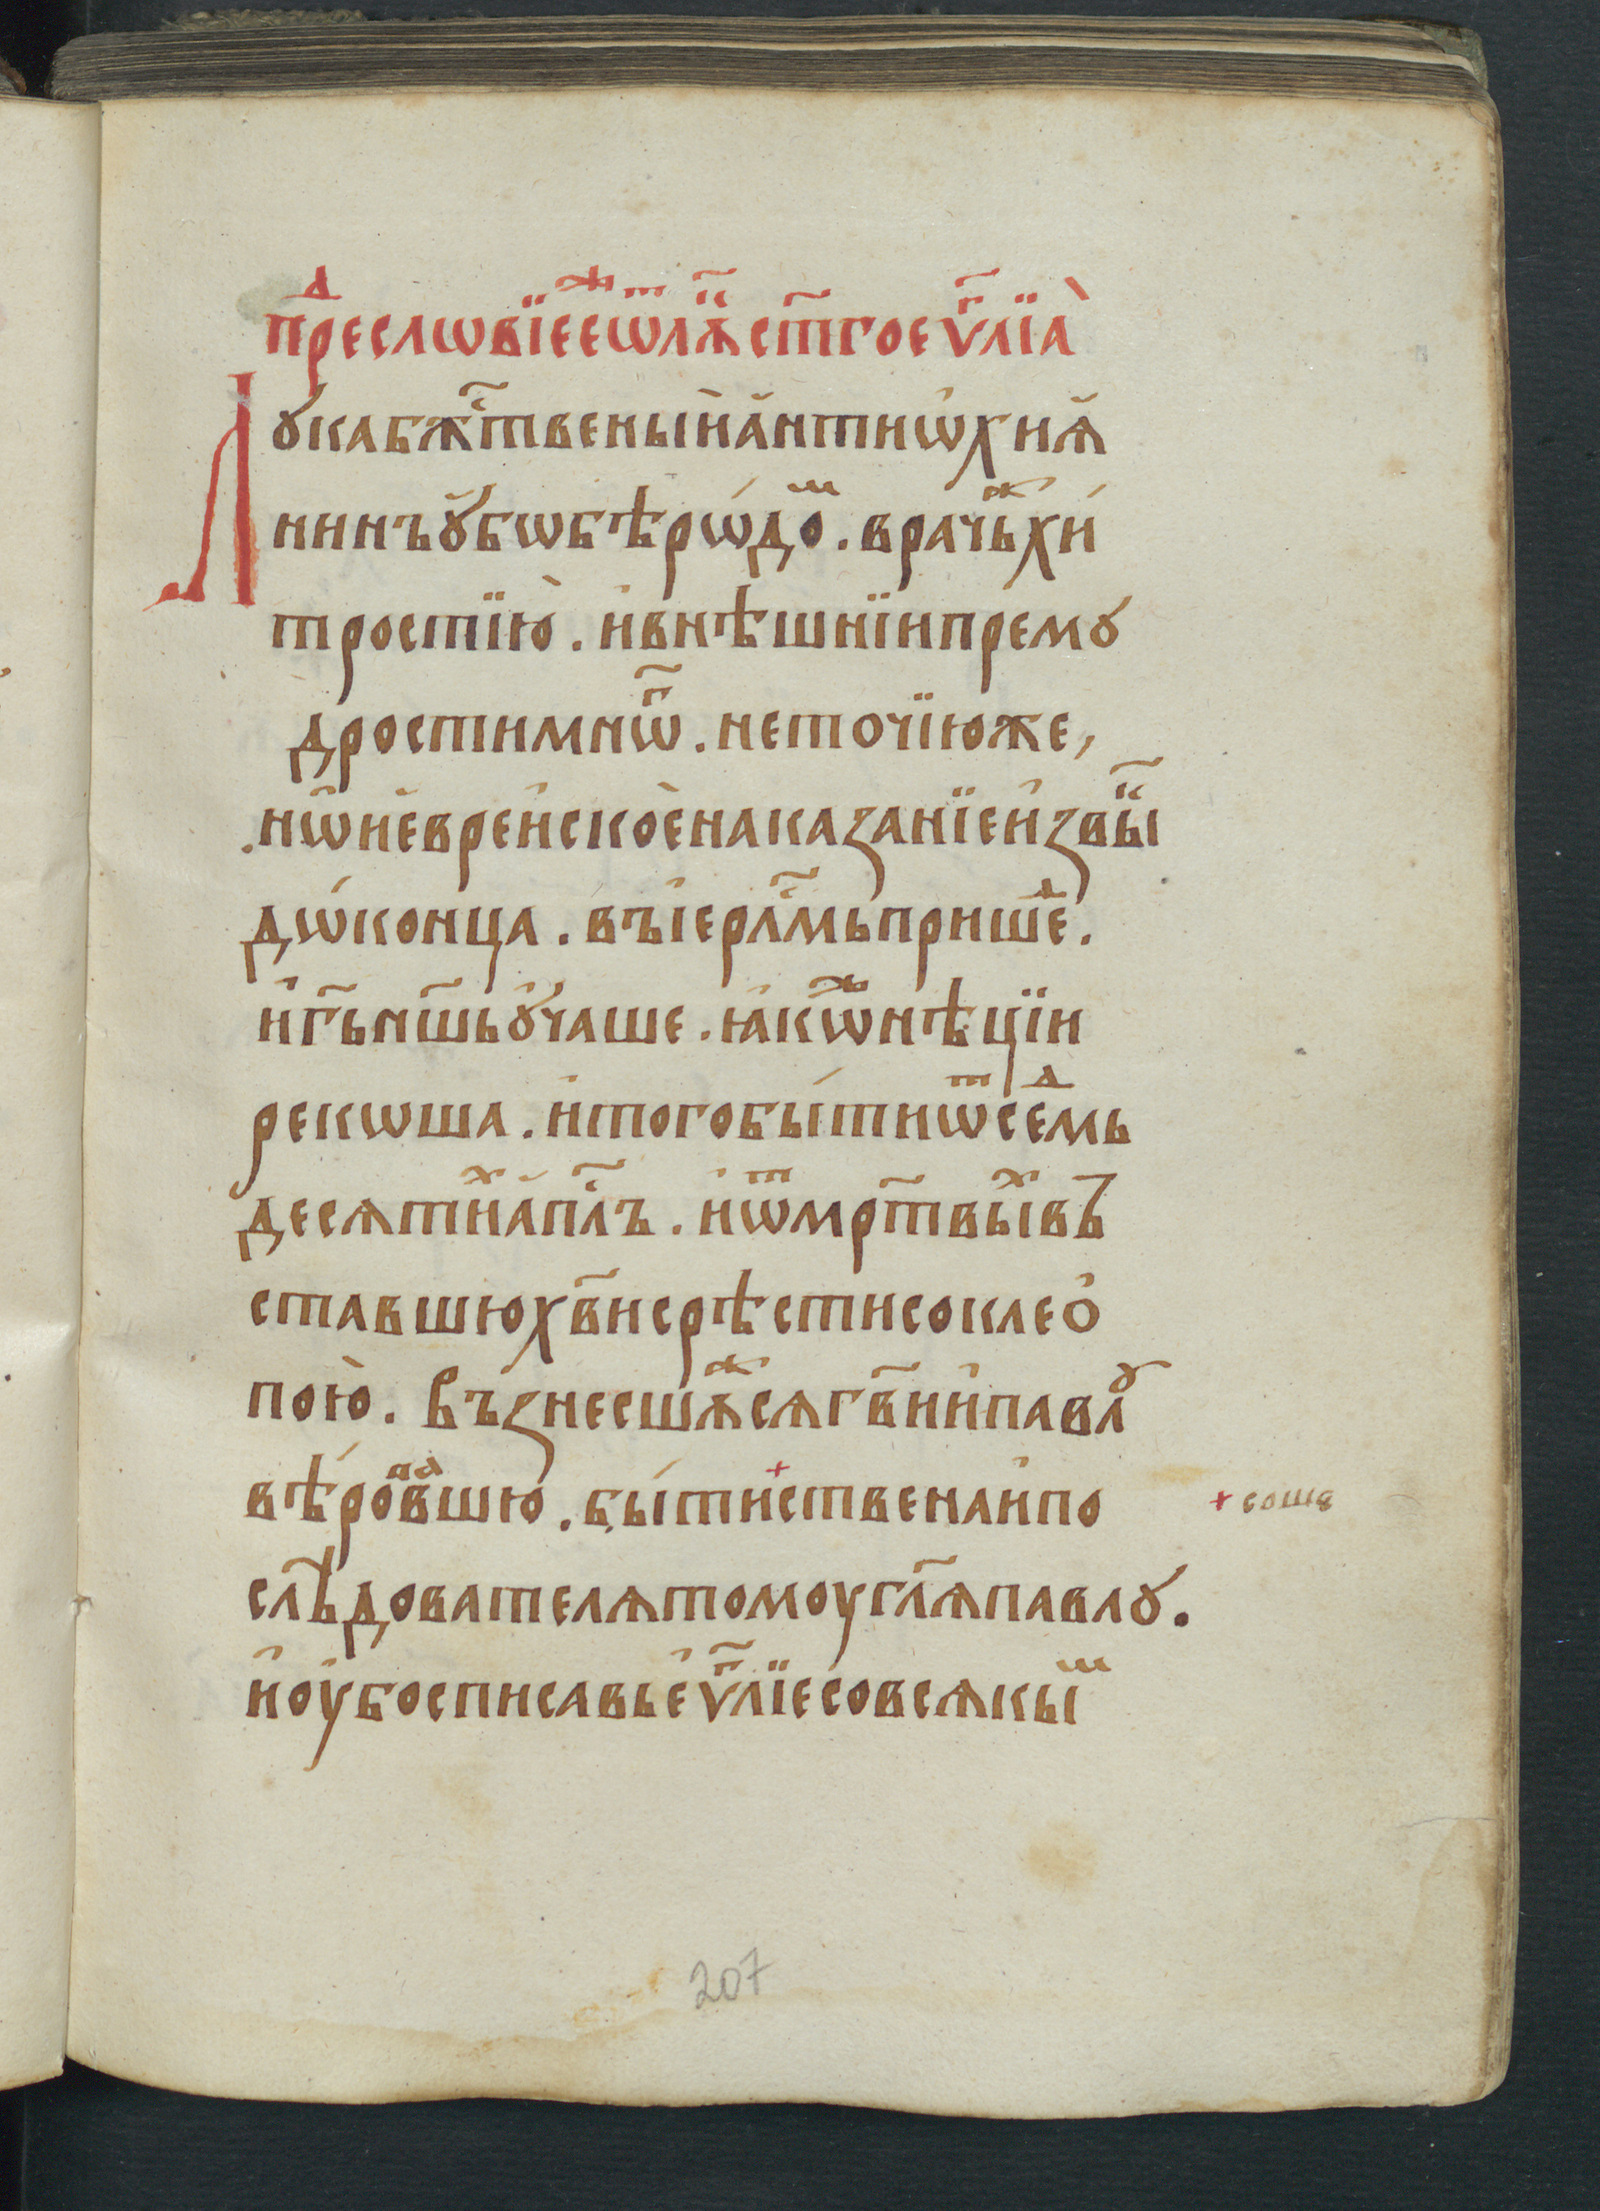 прⷣесловїе е́ж ѿ лꙋкⷭ҇ы ст҃гое ѵⷢ҇лїа̀
Лꙋка бжⷭ҇твены́й а҆нтиѡ҆хиꙗ҆
нинъ ꙋ҆бѡ бѣ рѡ́доⷨ. врачьⷤ хи́
тростїю̀. и҆ внѣшнїи премꙋ
дрости мнѡⷢ҇. не точїю же,
нѡ и҆ е҆вре́йское наказанїе и҆звыⷦ҇
дѡ́конца. въ і҆ерлⷭ҇мь пришеⷣ.
и҆ гⷭ҇ь нш҃ь ꙋ҆чаше. ꙗ҆кѡⷤ нѣцїи
рекѡша. и҆ того бы́ти ѿ сеⷣмь
десѧтиⷯ а҆пⷭ҇лъ. и҆ ѿ мрт҃выⷯ въ
ставшю хв҃и срѣсти со клео҆
пою̀. въꙁнесшꙗⷤ сѧ гв҃и и҆ павлꙋ
вѣ́роваⷡшю. бы́ти и҆ствена и҆ по
слѣ́дователѧ томоу гл҃ѧ павлꙋ.
и҆ оу҆бо списавь е҆ѵⷢ҇лїе со всѧкыⷨ
+ соше
207